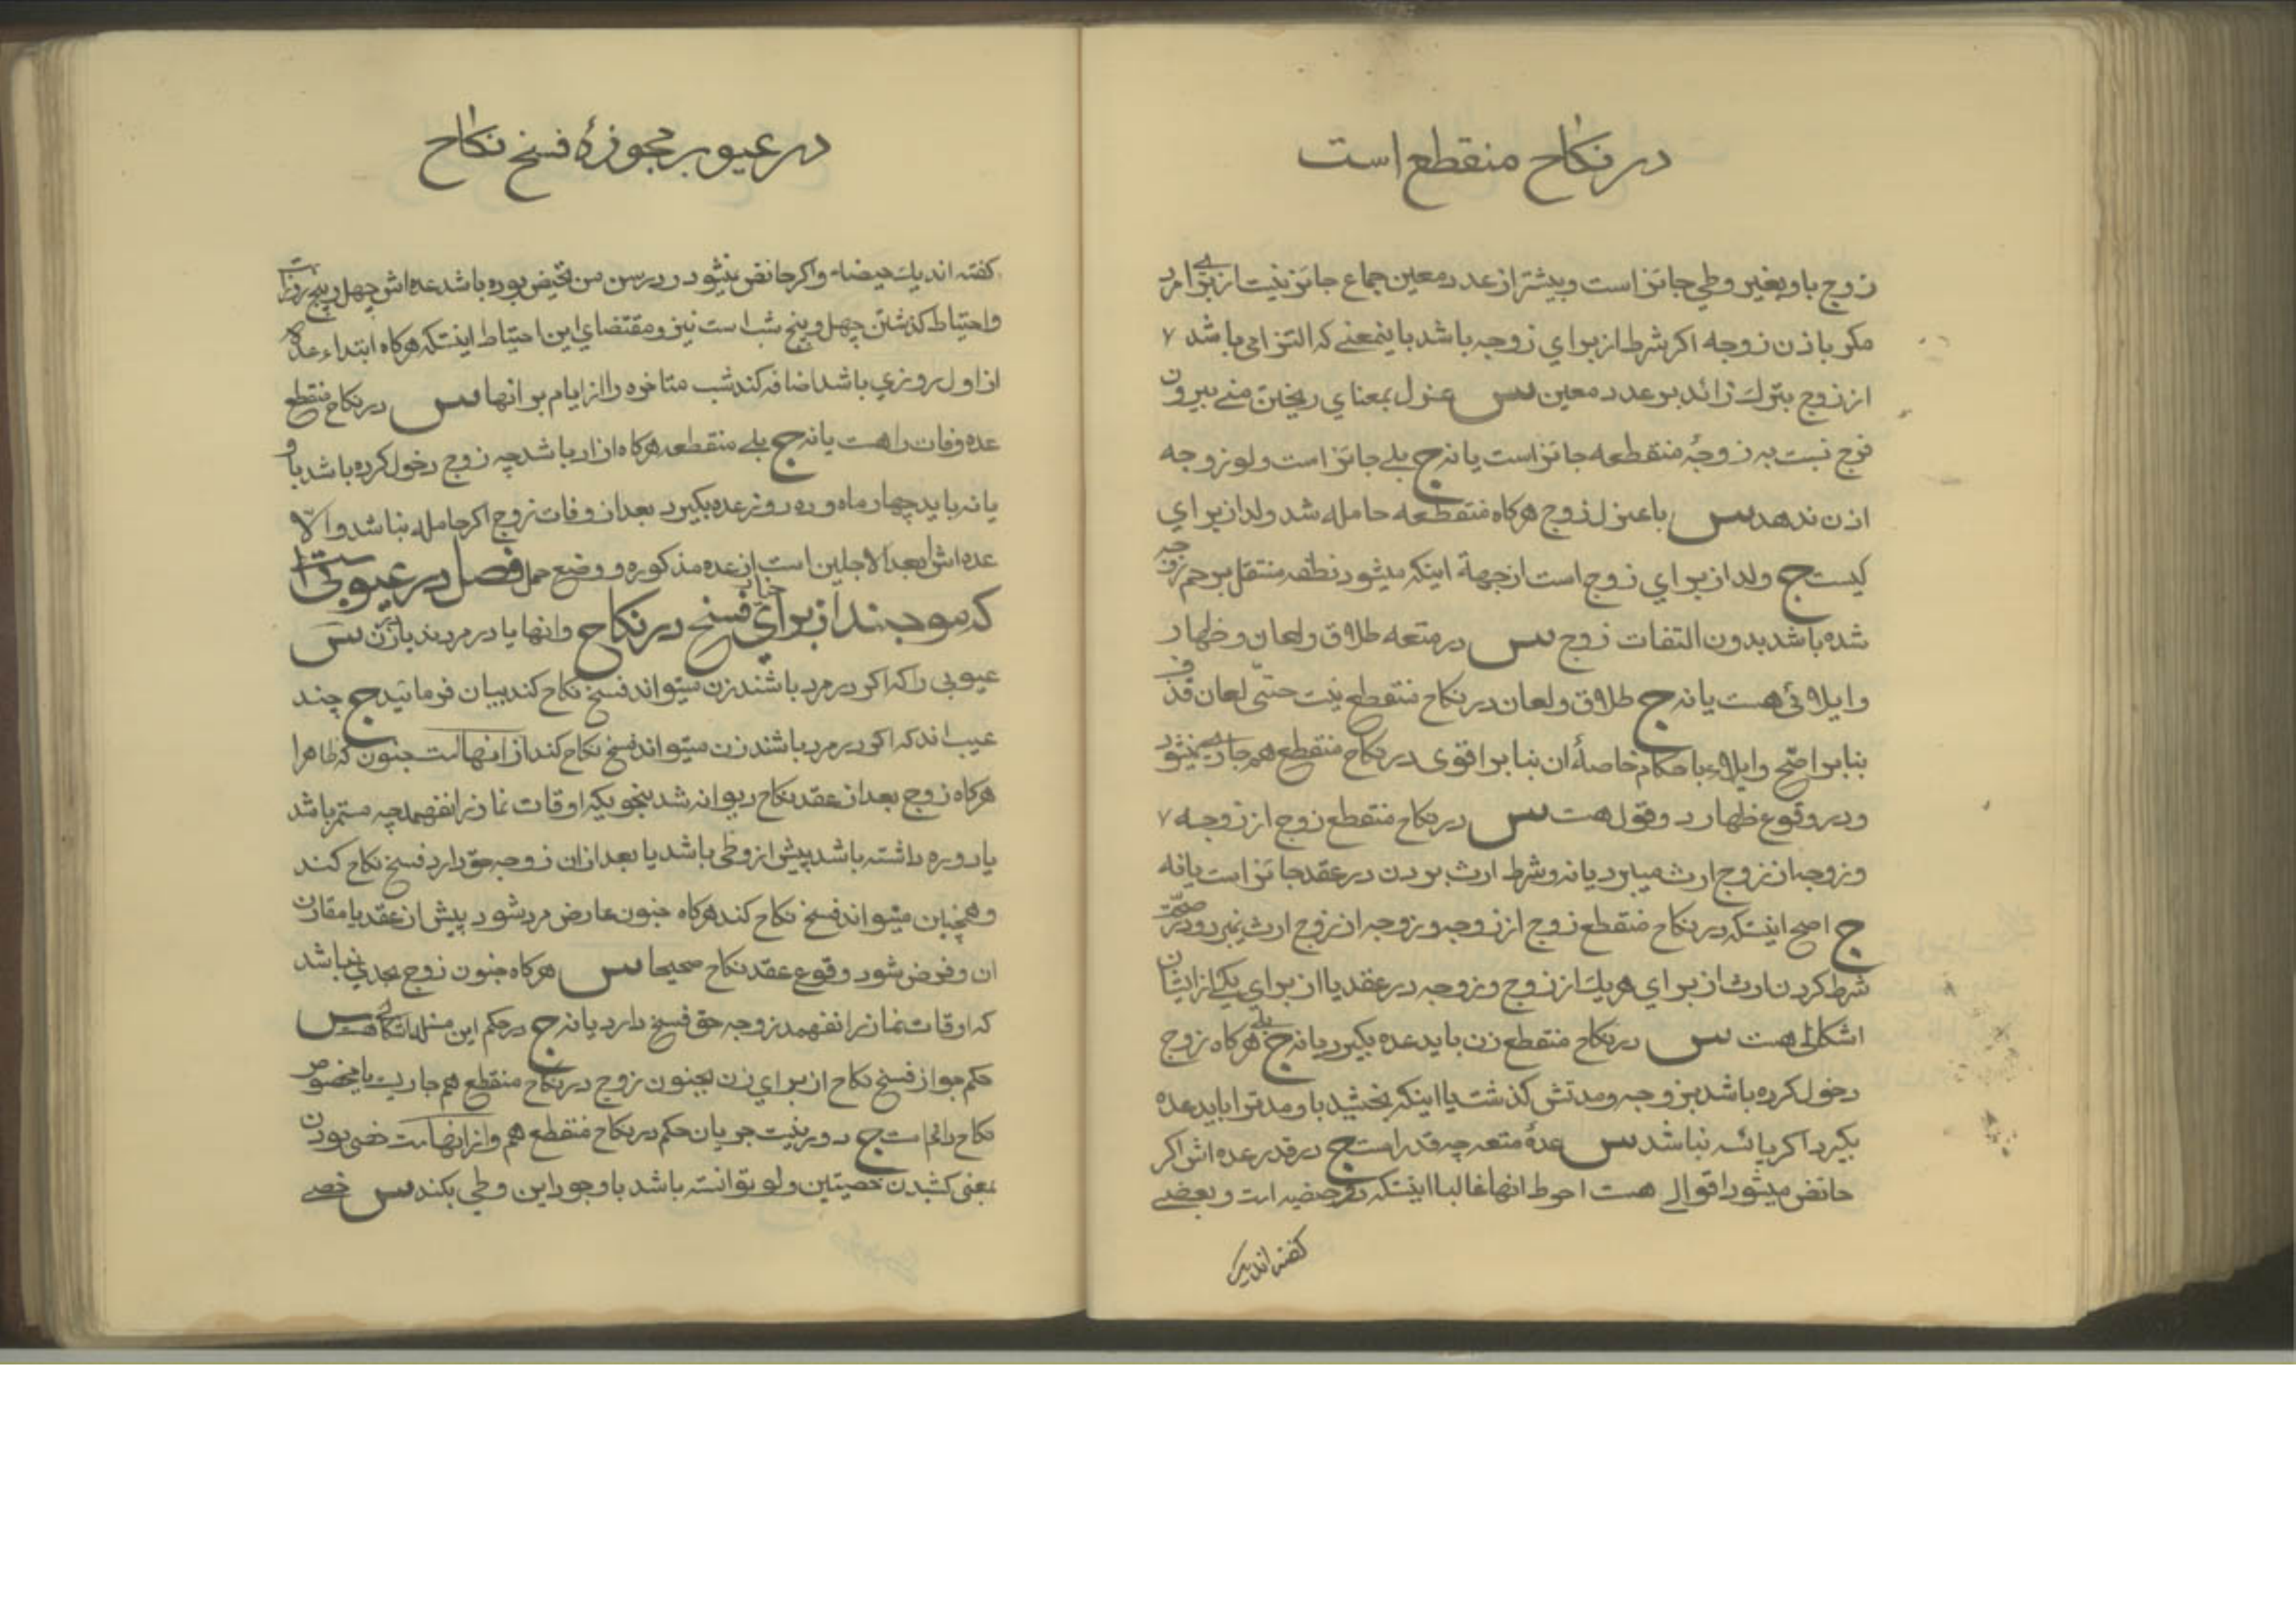 در نکاح منقطع است
زوج باو بغیر وطی جائز است و بیشتر از عدد معین جماع جائز نیست از برای مرد
مکر باذن زوجه اکر شرط از برای زوجه باشد باینمعنی که التزامی باشد
از زوج بترك زائد بر عدد معین س عزل بمعنای ریختن منی بیرون
فرج نسبت به زوجۀ منقطعه جائز است یا نه ج بلی جائز است ولو زوجه
اذن ندهد س با عزل زوج هرکاه منقطعه حامله شد ولد از برای
کیست ج ولد از برای زوج است از جهة اینکه میشود نطفه منتقل برحم زوجه
شده باشد بدون التفات زوج س در متعه طلاق و لعان و ظهار
و ایلائی هست یا نه ج طلاق و لعان در نکاح منقطع نیست حتّی لعان قذف
بنابر اصّح و ایلاء با حکام خاصۀ ان بنابر اقوی در نکاح منقطع هم جاری نمیشود
و در وقوع ظهار دو قول هست س در نکاح منقطع زوج از زوجه
و زوجه از زوج ارث میبرد یا نه و شرط ارث بردن در عقد جائز است یا نه
ج اصح اینستکه در نکاح منقطع زوج از زوجه و زوجه از زوج ارث نمیبرد و در صحّت
شرط کردن ارث از برای هریك از زوج و زوجه در عقد یا از برای یکی از ایشان
اشکال هست س در نکاح منقطع زن باید عده بکیرد یا نه ج بلی هرکاه زوج
دخول کرده باشد بزوجه و مدتش کذشت یا اینکه بخشید باو مدتوا باید عده
بکیرد اکر یائسه نباشد س عدۀ متعه چه قدر است ج در قدر عده اش اکر
حائض میشود اقوالی هست احوط انها غالبا اینستکه دو حیضه است و بعضی
کفته اندیك
در عیوب مجوزۀ فسخ نکاح
کفته اندیك حیضه و اکر حائض نمیشود و در سن من تحیض بوده باشد عده اش چهل و پنج روز است
و احتیاط کذشتن چهل و پنج شب است نیز و مقتضای این احتیاط اینستکه هرکاه ابتداء عده
از اول روزی باشد اضافه کند شب متاخره را از ایام بر انها س در نکاح منقطع
عده وفات را هست یا نه ج بلی منقطعه هرکاه ازاد باشد چه زوج دخول کرده باشد باو
یا نه باید چهار ماه و ده روز عده بکیرد بعد از وفات زوج اکر حامله نباشد و الّا
عده اش ابعد الاجلین است از عده مذکوره و وضع حمل فصل در عیوبی است
که موجبند از برای خیار فسخ در نکاح و انها یا در مردند یا در زن س
عیوبی را که اکر در مرد باشند زن میتواند فسخ نکاح کند بیان فرمائید ج چند
عیب اند که اکر در مرد باشند زن میتواند فسخ نکاح کند از انهاست جنون که ظاهرا
هرکاه زوج بعد از عقد نکاح دیوانه شد بنحویکه اوقات نماز را نفهمد چه مستمر باشد
یا دوره داشته باشد پیش از وطی باشد یا بعد از ان زوجه حق دارد فسخ نکاح کند
و همچنین میتواند فسخ نکاح کند هرکاه جنون عارض مرد شود پیش از عقد یا مقارن
ان و فرض شود وقوع عقد نکاح صحیحا س هرکاه جنون زوج بحدی نباشد
که اوقات نماز را نفهمد زوجه حق فسخ دارد یا نه ج در حکم این مسئله اشکالی هست س
حکم جواز فسخ نکاح از برای زن بجنون زوج در نکاح منقطع هم جاریست یا مخصوص
نکاح دائم است ج دور نیست جریان حکم در نکاح منقطع هم و از انهاست خصی بودن
بمعنی کشیدن خصیتین ولو توانسته باشد با وجود این وطی بکند س خصی